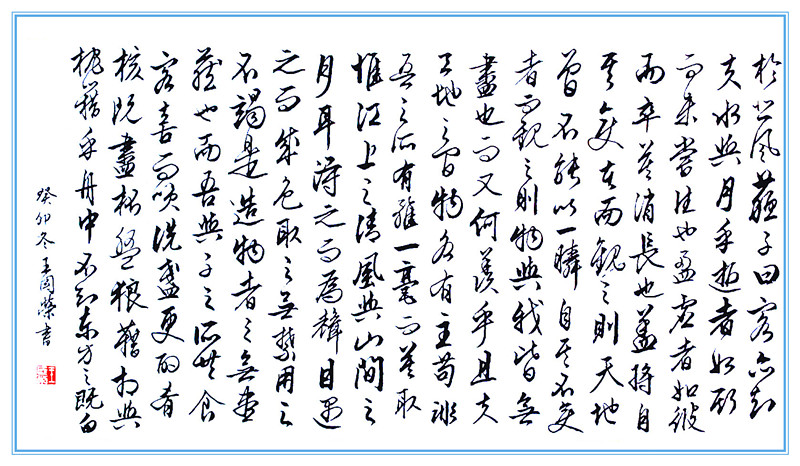 於悲風蘇子曰客亦知
夫水與月乎逝者如斯
而未嘗往也盈虛者如彼
而卒莫消長也蓋將自
其變者而觀之則天地
曾不能以一瞬自其不變
者而觀之則物與我皆無
盡也而又何羨乎且夫
天地之間物各有主苟非
吾之所有雖一毫而莫取
惟江上之清風與山間之
月耳得之而為聲目遇
之而成色取之無禁用之
不竭是造物者之無盡
藏也而吾與子之所共食
客喜而笑洗盞更酌肴
核既盡杯盤狼藉相與
枕藉乎舟中不知東方之既白
癸卯冬王國榮書